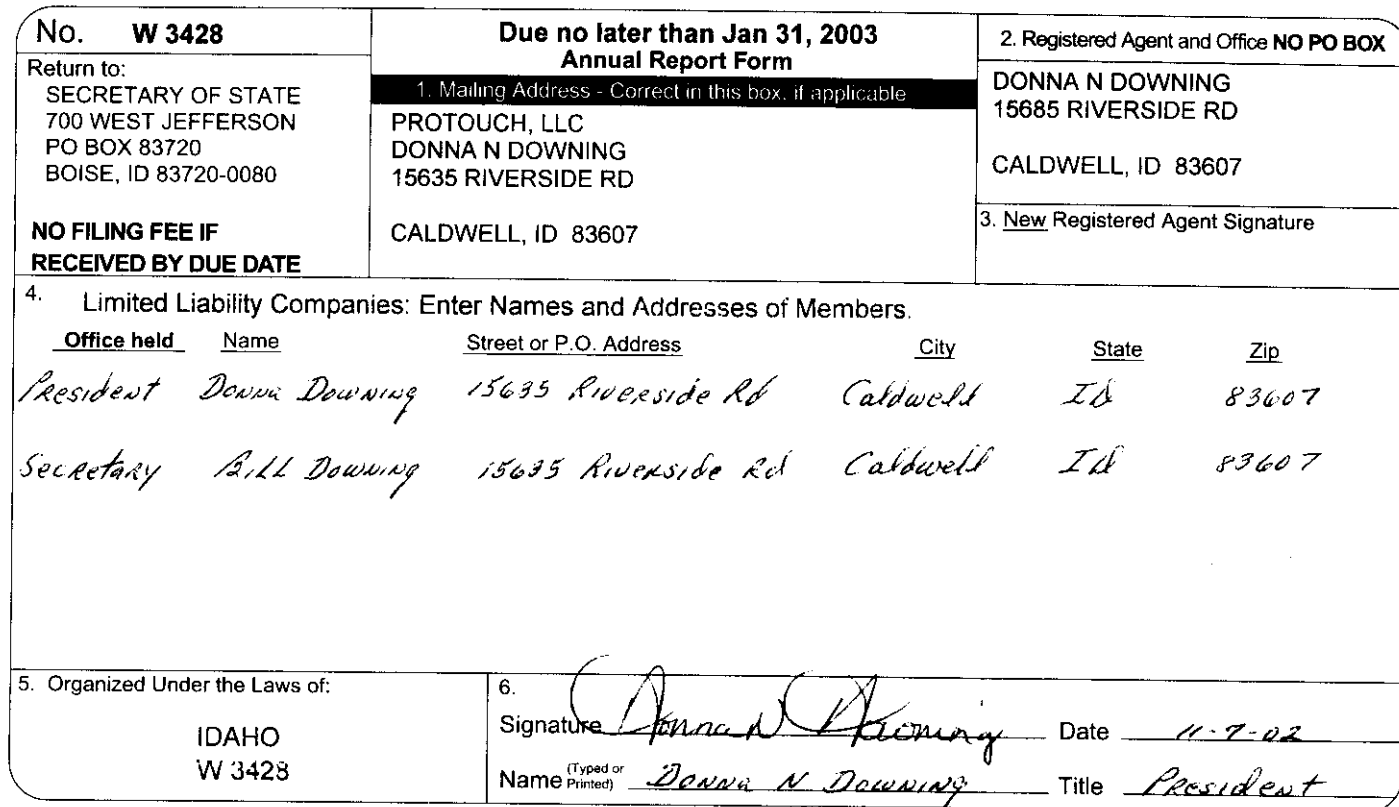 No. W 3428
Return to:
SECRETARY OF STATE
700 WEST JEFFERSON
PO BOX 83720
BOISE, ID 83720-0080
NO FILING FEE IF
RECEIVED BY DUE DATE
Due no later than Jan 31, 2003
Annual Report Form
1. Mailing Address - Correct in this box, if applicable
PROTOUCH, LLC
DONNA N DOWNING
15635 RIVERSIDE RD
CALDWELL, ID 83607
2. Registered Agent and Office NO PO BOX
DONNA N DOWNING
15685 RIVERSIDE RD
CALDWELL, ID 83607
3. New Registered Agent Signature
4. Limited Liability Companies: Enter Names and Addresses of Members.
Office held Name Street or P.O. Address City State Zip
President Donna Downing 15635 Riverside Rd Caldwell Id 83607
Secretary Bill Downing 15635 Riverside Rd Caldwell Id 83607
5. Organized Under the Laws of:
IDAHO
W 3428
6.
Signature Donna N Downing Date 11-7-02
Name (Typed or Printed) Donna N Downing Title President